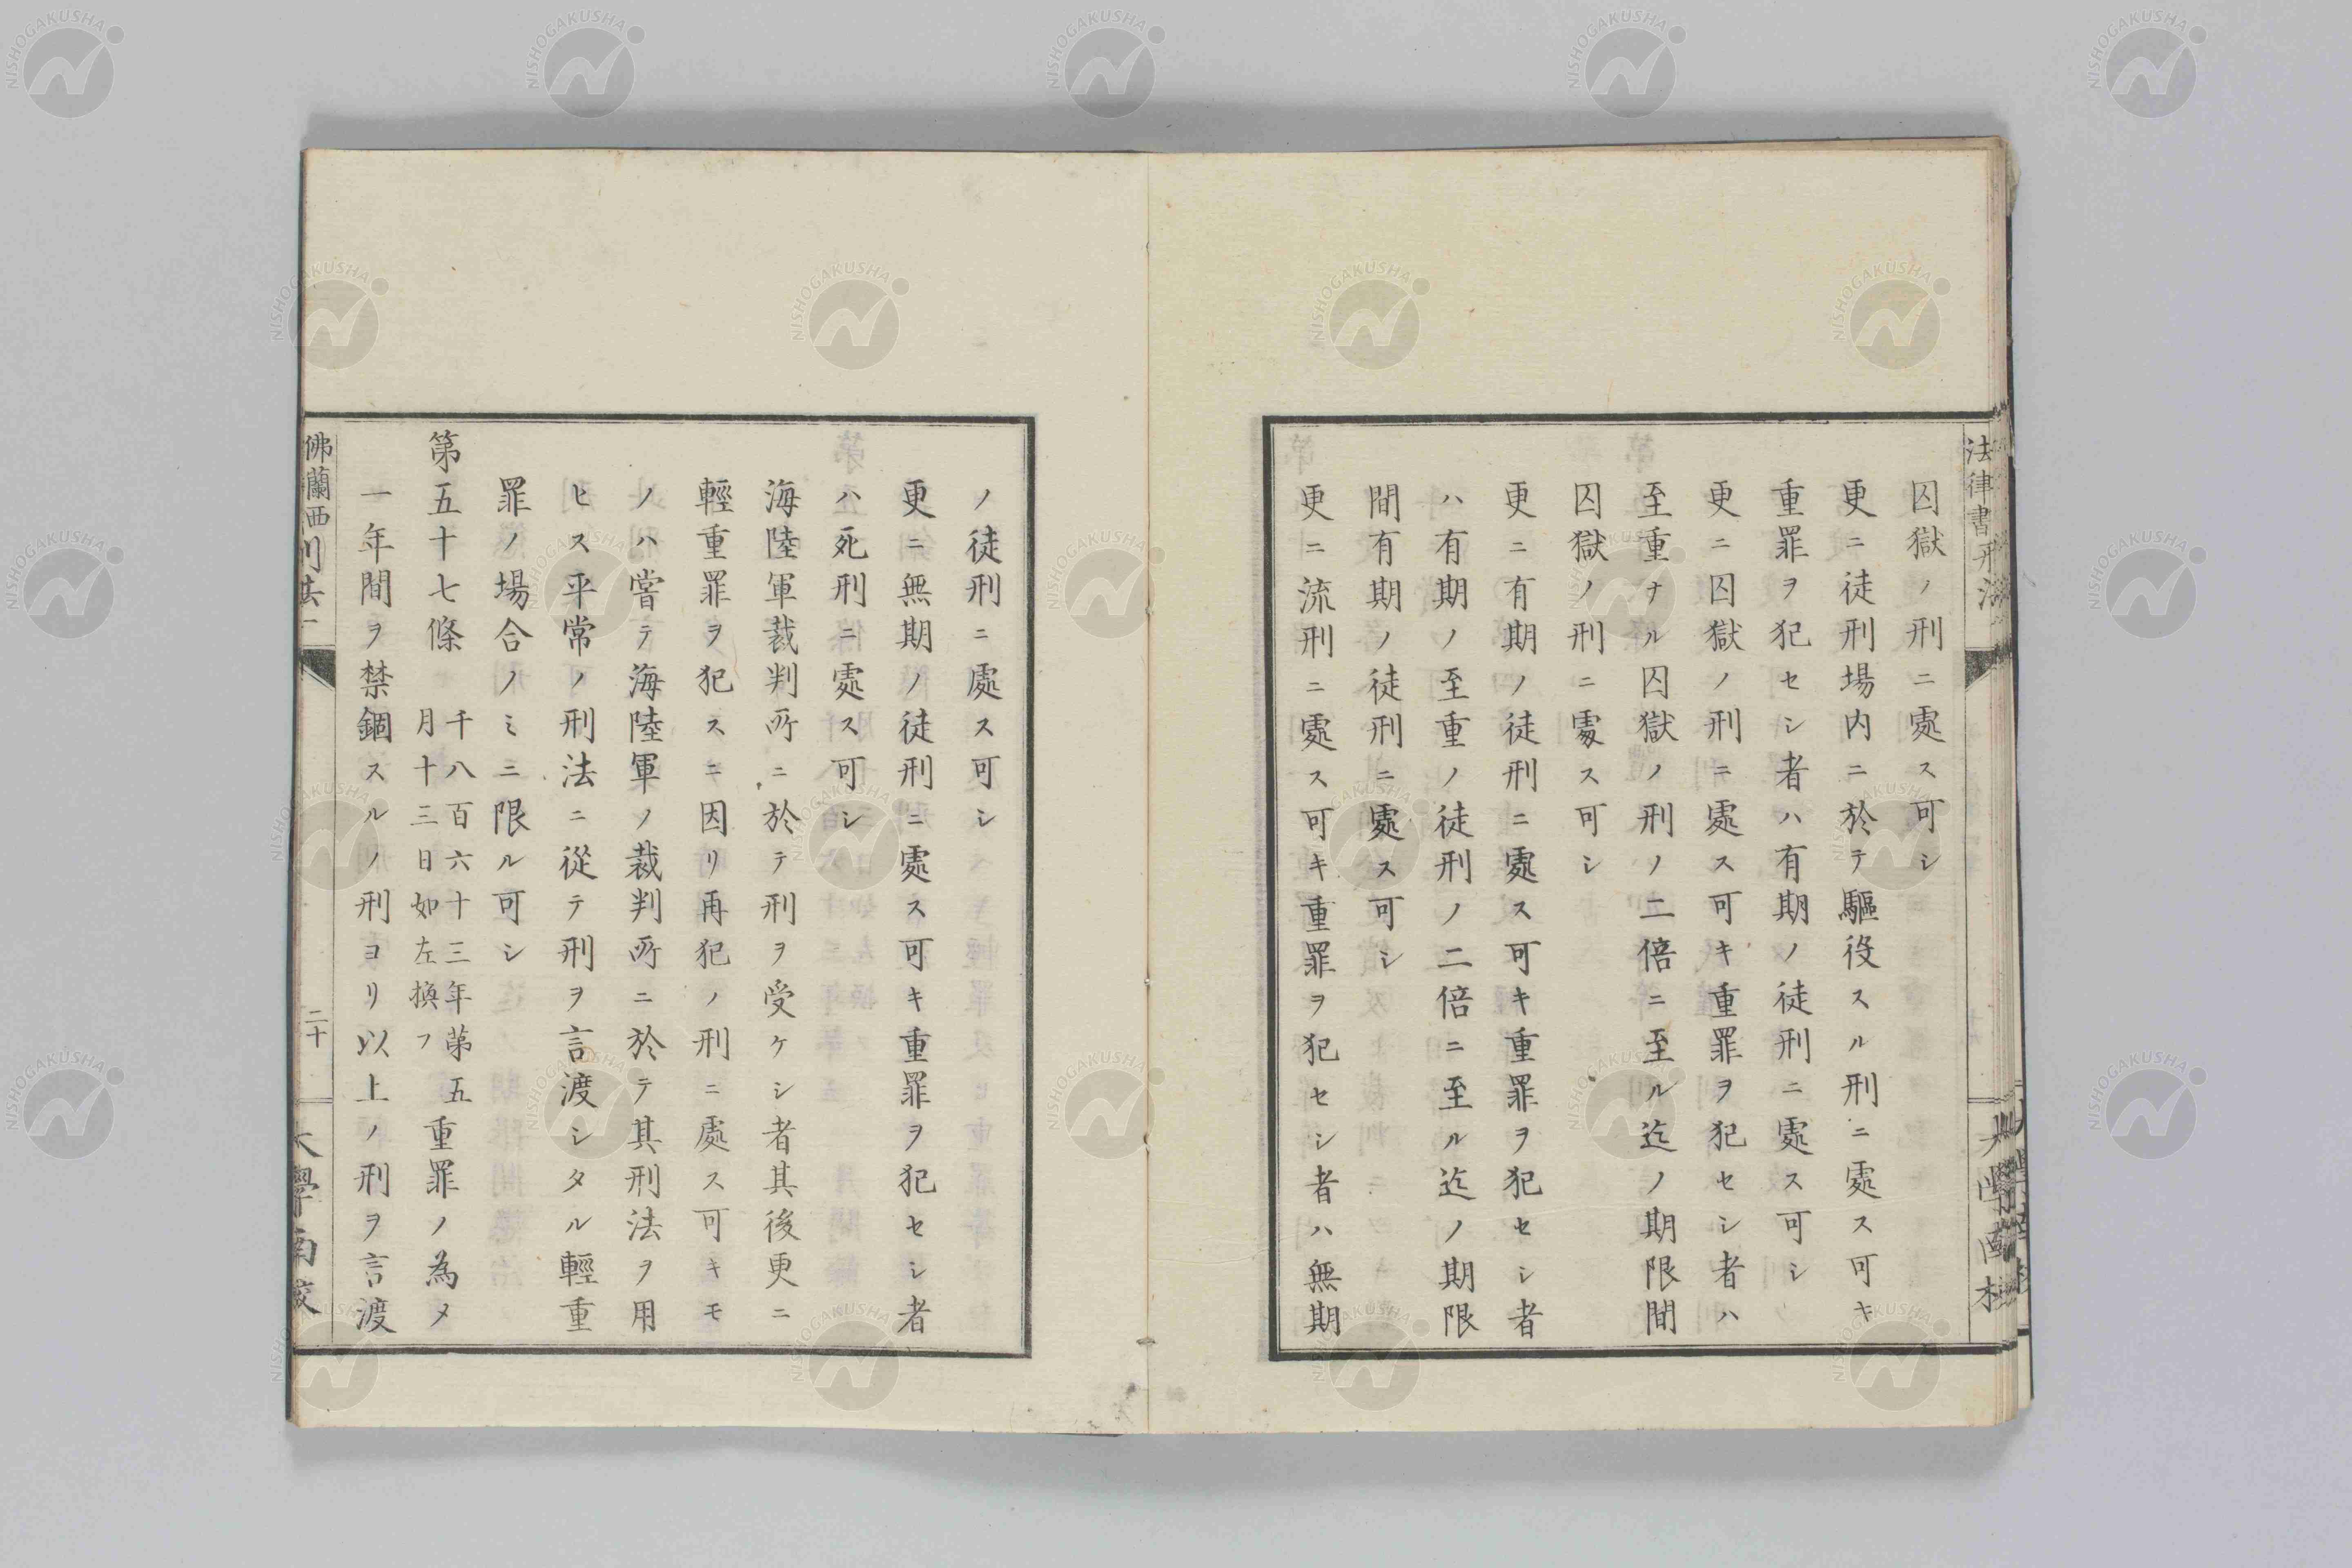 囚獄ノ刑ニ處ス可シ
更ニ徒刑場内ニ於テ驅役スル刑ニ處ス可キ
重罪ヲ犯セシ者ハ有期ノ徒刑ニ處ス可シ
更ニ囚獄ノ刑ニ處ス可キ重罪ヲ犯セシ者ハ
至重ナル囚獄ノ刑ノ二倍ニ至ル迄ノ期限間
囚獄ノ刑ニ處ス可シ
更ニ有期ノ徒刑ニ處ス可キ重罪ヲ犯セシ者
ハ有期ノ至重ノ徒刑ノ二倍ニ至ル迄ノ期限
間有期ノ徒刑ニ處ス可シ
更ニ流刑ニ處ス可キ重罪ヲ犯セシ者ハ無期
ノ徒刑ニ處ス可シ
更ニ無期ノ徒刑ニ處ス可キ重罪ヲ犯セシ者
ハ死刑ニ處ス可シ
海陸軍裁判所ニ於テ刑ヲ受ケシ者其後更ニ
輕重罪ヲ犯スニ因リ再犯ノ刑ニ處ス可キモ
ノハ嘗テ海陸軍ノ裁判所ニ於テ其刑法ヲ用
ヒス平常ノ刑法ニ從テ刑ヲ言渡シタル輕重
罪ノ場合ノミニ限ル可シ
第五十七條 千八百六十三年第五月十三日如左換フ 重罪ノ為メ
一年間ヲ禁錮スルノ刑ヨリ以上ノ刑ヲ言渡
法律書
佛蘭西
二十
大學南校
NISHOGAKUSHA